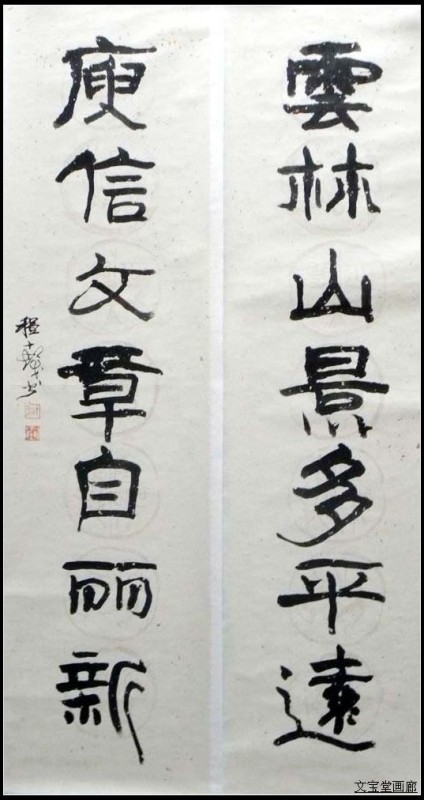 雲林山景多平遠
庾信文章自丽新
程十髮书
文宝堂画廊